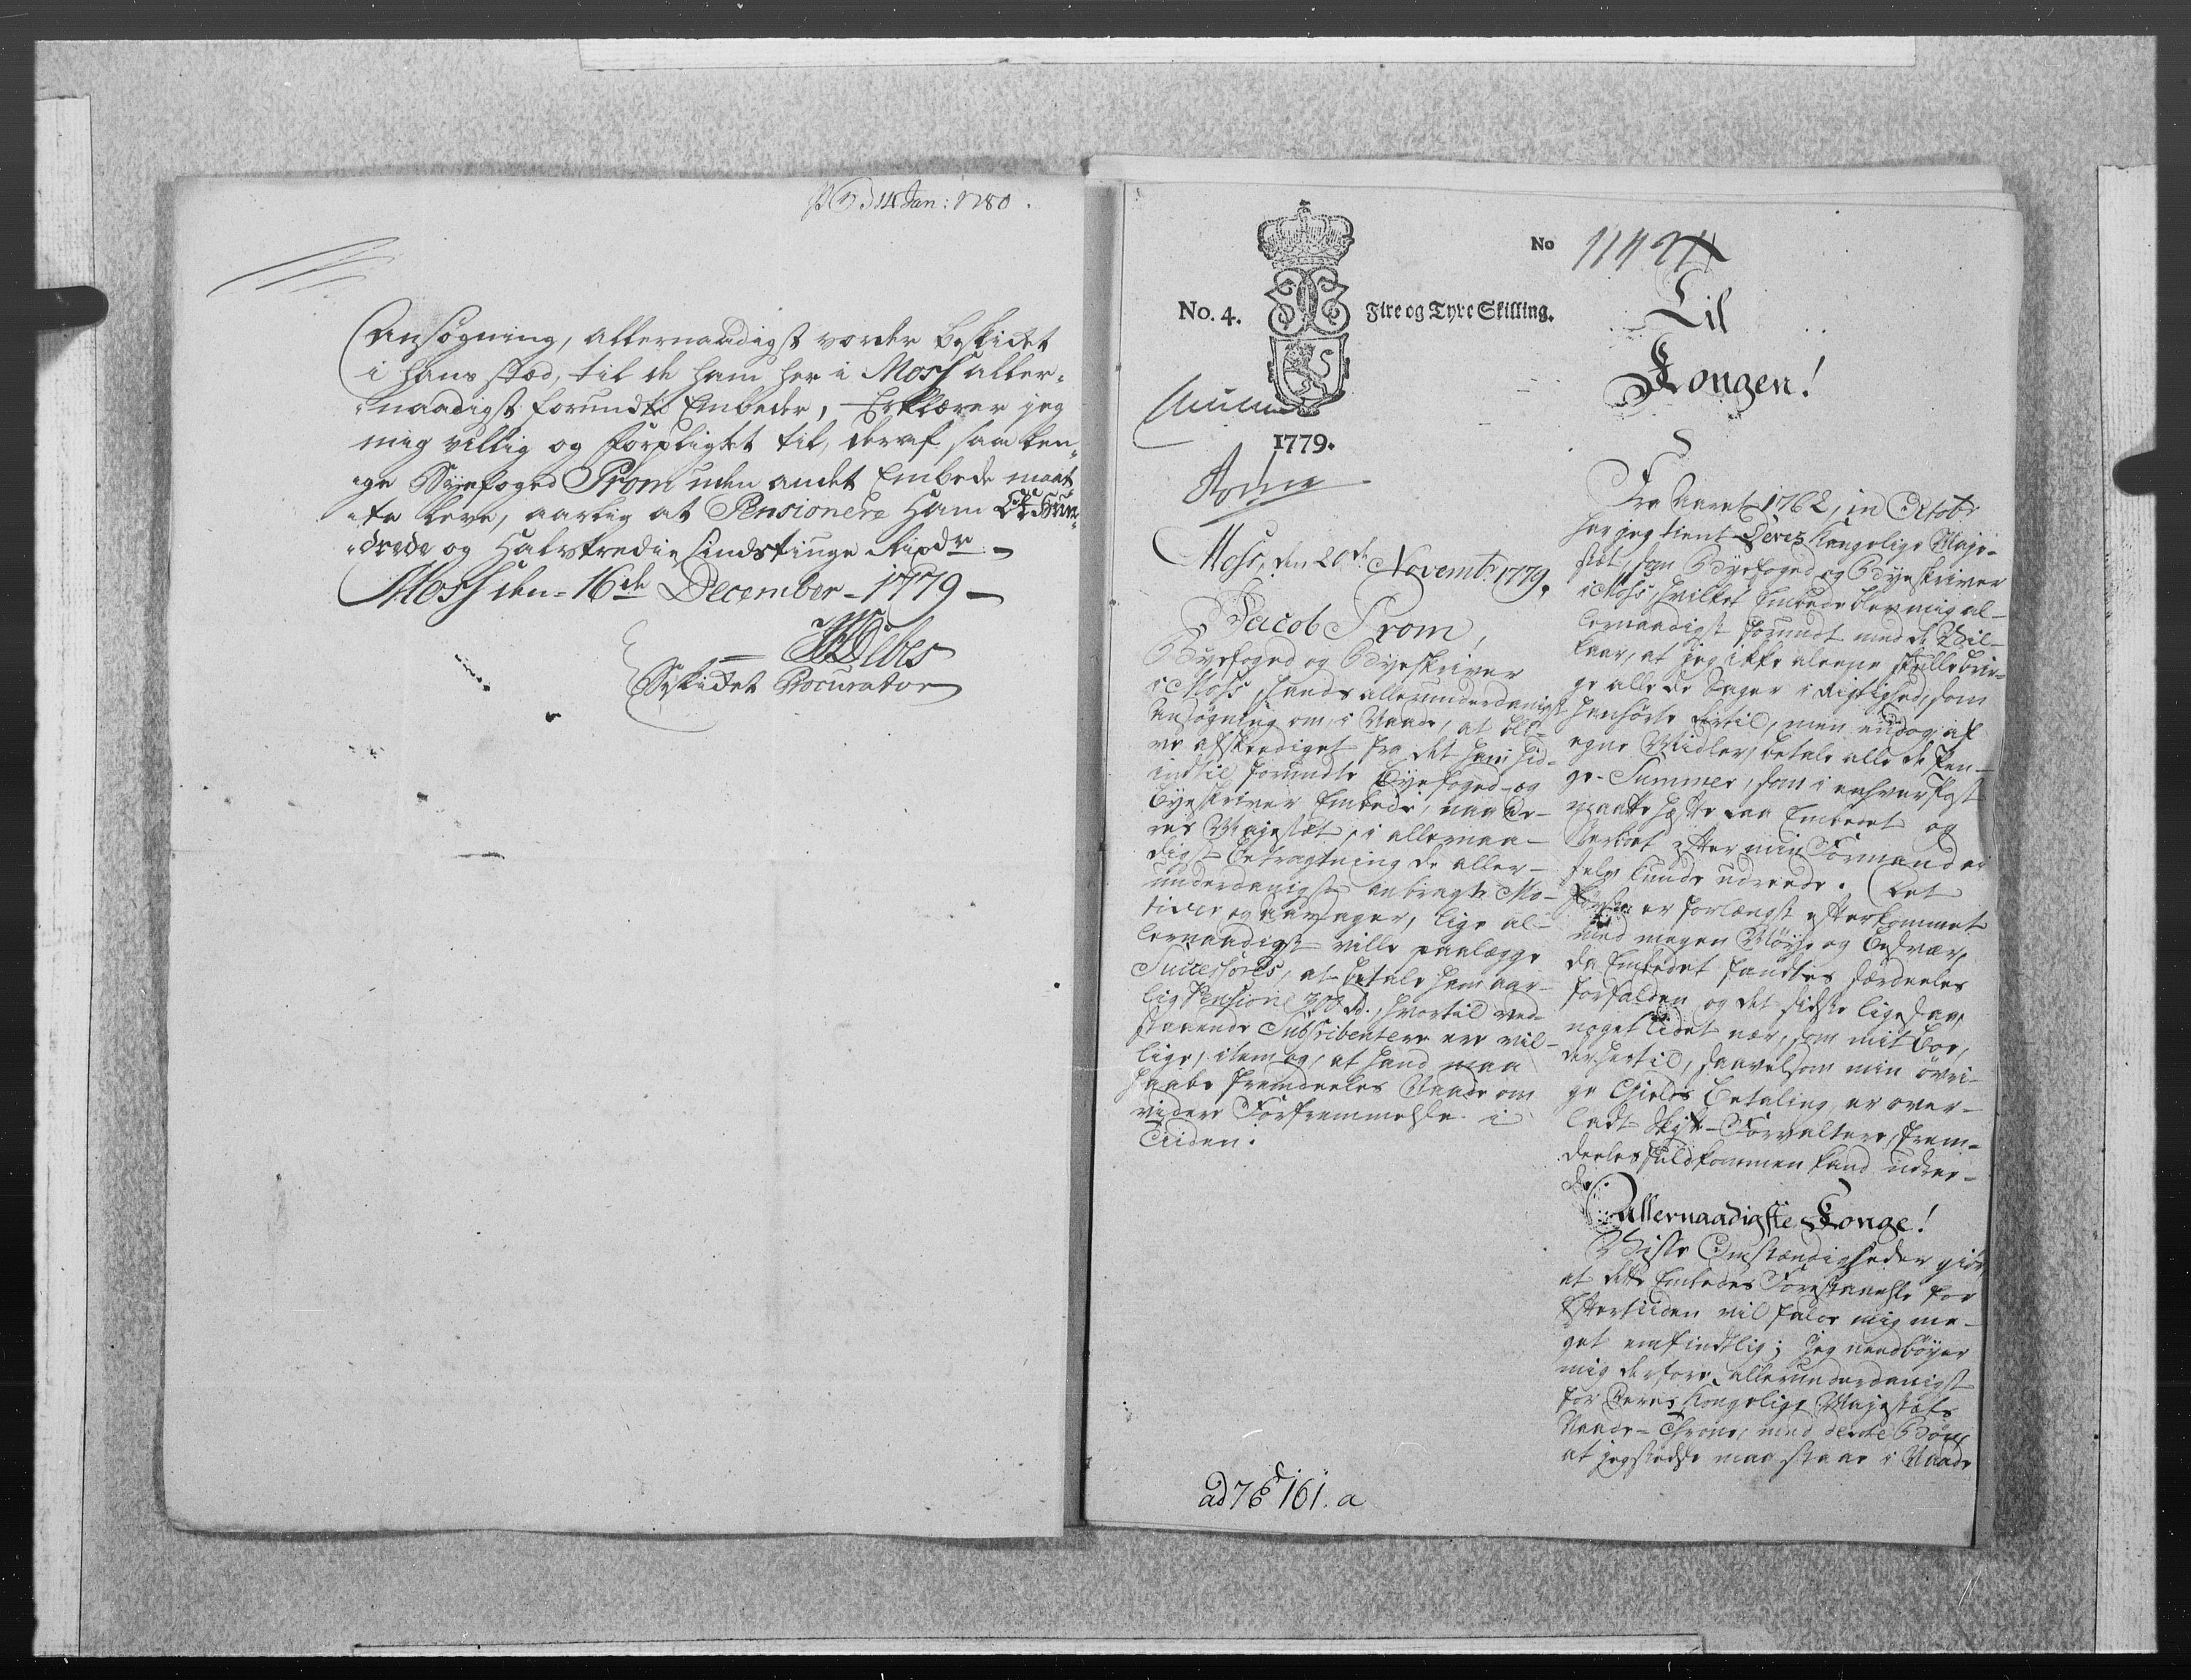 14 Jan: 1780.
Ansøgning, allernaadigst vorder beskiket
i hans stæd, til de ham her i Moss aller-
naadigst forundte Embeder, Erklærer jeg
mig villig og forpligtet til, deraf, saa len-
ge Byefoged Prom uden andet Embede maat-
te leve, aarlig at Pensionere Ham Et Hun-
drede og Halvtrediesindstiuge Rixdr
Moss den 16de December 1779
Beskiket Procurator
No 11424
No. 4. Fire og Tyve Skilling.
1779.
Moss, den 20de Novembr 1779.
Jacob Prom,
Byefoged og Byeskriver
i Moss, hands allerunderdanigst
Ansøgning om, i Naade, at bli-
ve afskediget fra det ham hid-
indtil forundte Byefoged- og
Byeskriver Embede, naar De-
res Majestæt, i allernaa-
digst Betragtning de aller-
underdanigst anbragte Mo-
tiver og Aarsager, lige al-
lernaadigst ville paalægge
Successores, at betale ham aar-
lig Pension 300 rd., hvortil ved-
staaende Subscribentere ere vil-
lige, item og, at hand maa
haabe fremdeeles Naade om
videre Forfremmelse i
Tiiden.
ad 76 161. a
Til
Kongen!
Fra Aaret 1762, in Octobr
har jeg tient Deres Kongelige Maje-
stæt, som Byefoged og Byeskriver
i Moss, hvilket Embede blev mig al-
lernaadigst forundt med de Vil-
kaar, at jeg ikke aleene skulle brin-
ge alle de Sager i Rigtighed, som
henhørte dertil, men endog af
egne Midler, betale alle de Pen-
ge-Summer, som i enhver Post
maatte hæfte paa Embedet og
efter min Formand ei
selv kunde udreede. Det
første er forlængst efterkommet
med megen Møye og Besvær,
da Embedet fandtes særdeeles
forfalden og det sidste ligesaa,
noget lidet nær, som mit Boe,
der hertil, saavelsom min øvri-
ge Gields Betaling er over-
ladt Skifte-Forvaltere, frem-
deeles fuldkommen kand udree-
de.
Allernaadigste Konge!
Visse Omstændigheder giør,
at dette Embedes Forestaaelse for
Eftertiiden vil falde mig me-
get emfindtlig; jeg nedbøyer
mig derfore allerunderdanigst
for Deres Kongelige Majestæts
Naade-Throne, med denne Bøn,
at jeg stedse maa staae i Naade